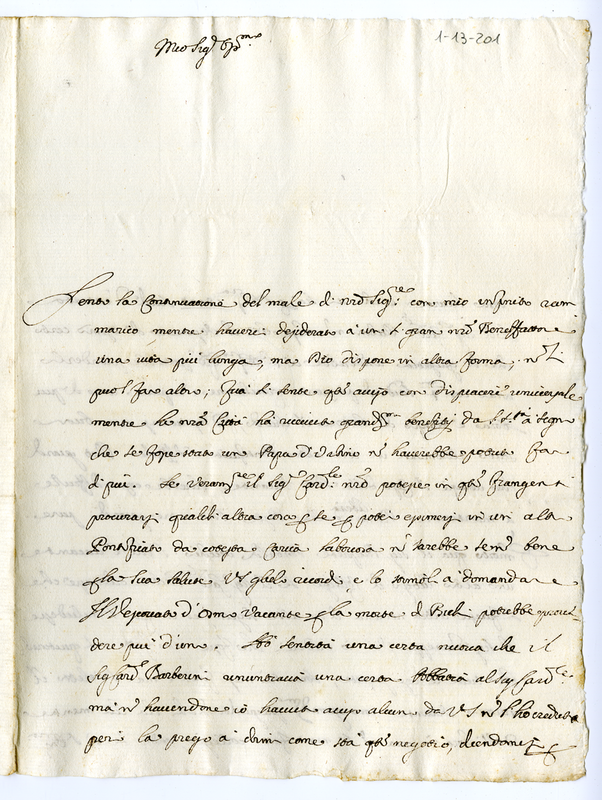 1-13-201
Mio Sig.r Oss.mo
Sento la Continuatione del male di nro Sig.re con mio infinito ram
marico mentre haverei desiderato à un sì gran nro Benefattore
una vita più lunga, ma Dio dispone in altra forma, nè si
può far altro; Quà si sente qto aviso con dispiacere universale
mentre la nra Città hà ricevuto grand.mi benefitij da S. S.tà à segno
che se fosse stato un Papa d'Urbino nò haverebbe potuto far
di più. Se veram.te il Sig.r Card.le nro potesse in qti frangenti
procurarsi qualche altra cosa e esimersi in un altro
Pontificato da cotesta Carica laboriosa nò sarebbe se nò bene
p la sua salute VS glielo ricordi, e lo stimoli à domandare
Il Vescovato d'Osimo Vacante p la morte di Bichi potrebbe
dere più d'uno. Hò sentito una certa nuova che il
Sig.r Card.l Barberini rinuntiava una certa Abbatia al Sig.r Card.le
mà nò havendone io havuto aviso alcuno da VS nò l'ho creduta
però la prego à dirmi come stà qto negotio, dicendomisi